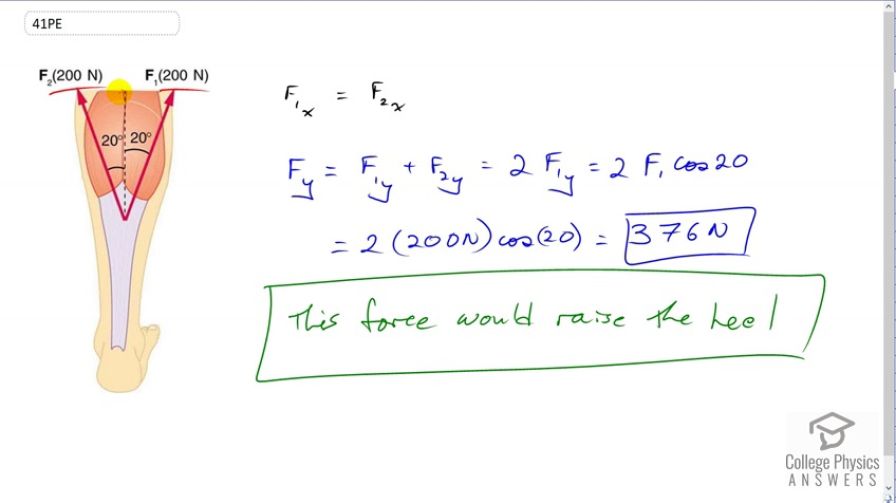 41PE
F₂(200 N) F₁(200 N)
20° 20°
F₁ₓ = F₂ₓ
F_y = F₁y + F₂y = 2 F₁y = 2 F₁ cos20
= 2 (200N) cos(20) = 376 N
This force would raise the heel
College Physics
ANSWERS